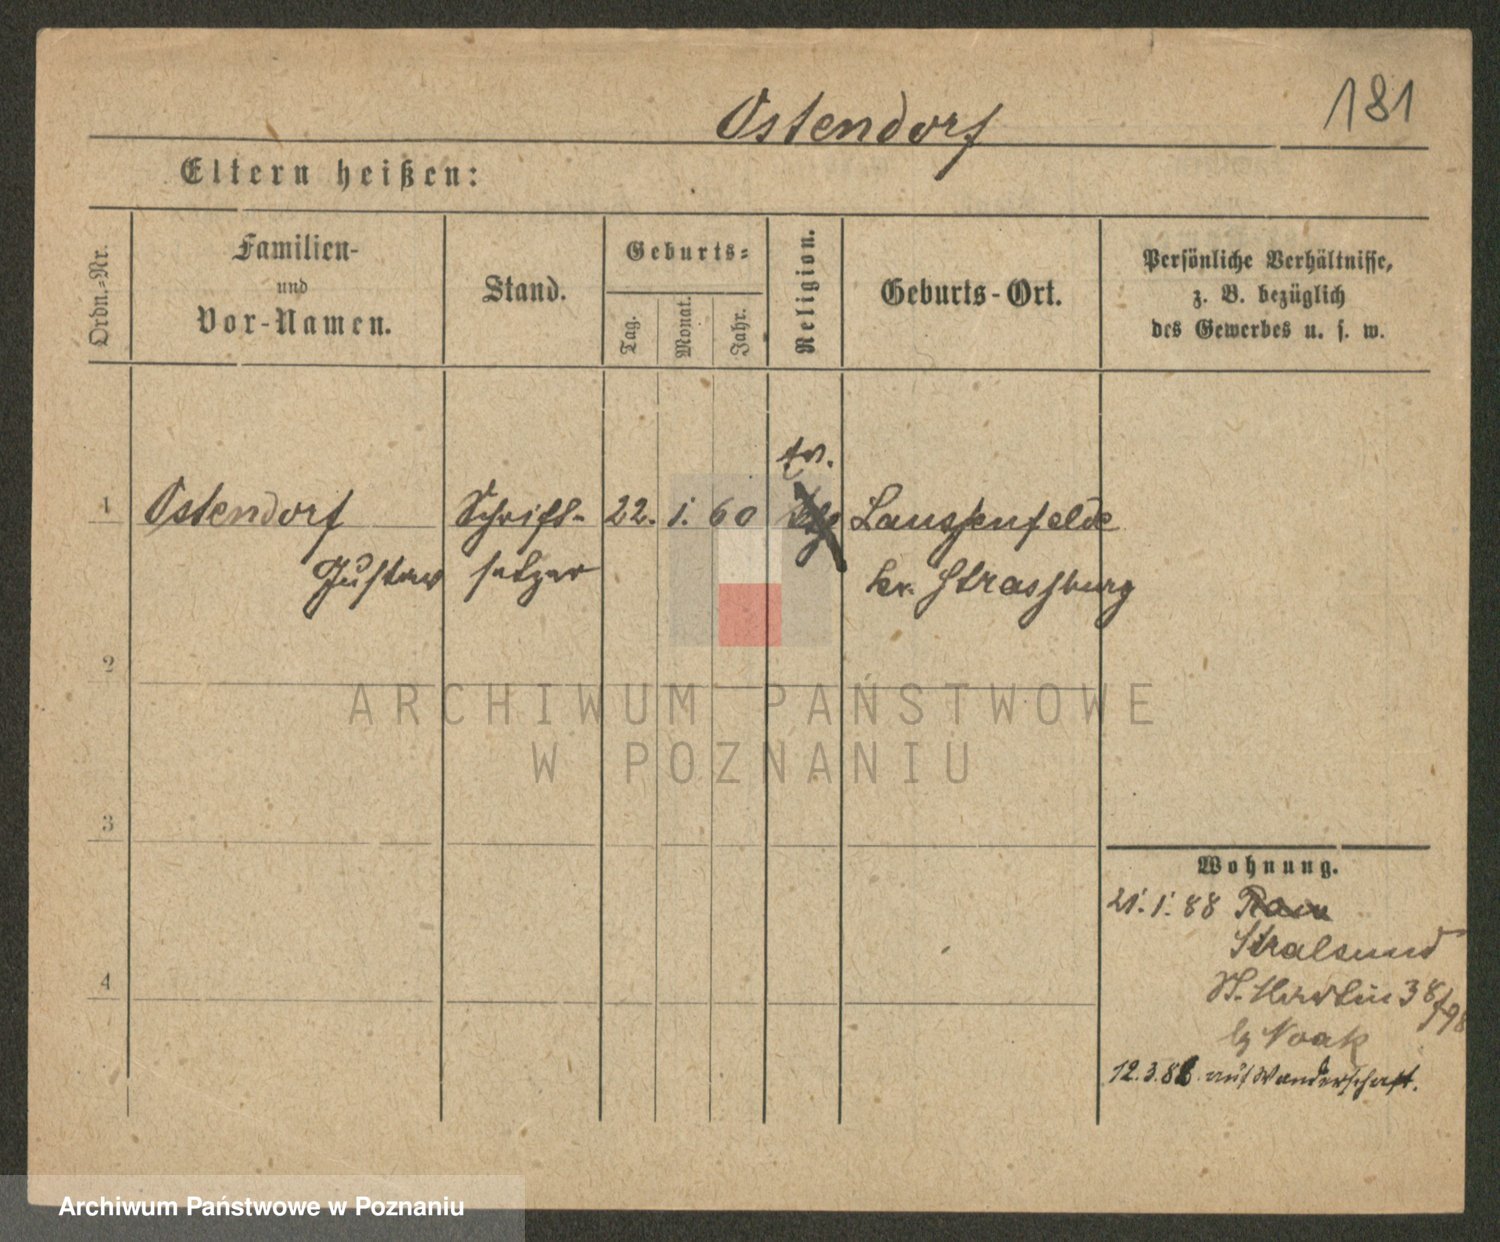 181
Ostendorf
Eltern heißen:
Ordn.-Nr.
Familien-
und
Vor-Namen.
Stand.
Geburts-
Tag.
Monat.
Jahr.
Religion.
Geburts-Ort.
Persönliche Verhältnisse,
z. B. bezüglich
des Gewerbes u. s. w.
ev.
1 Ostendorf Schrift- 22. 1. 60
Gustav setzer kr. Strassburg
2
3
4
ARCHIWUM PAŃSTWOWE
W POZNANIU
Wohnung.
21. 1. 88
Stralsund
St. Martin 38
b/ Noak
12.3.88. auf Wanderschaft.
Archiwum Państwowe w Poznaniu